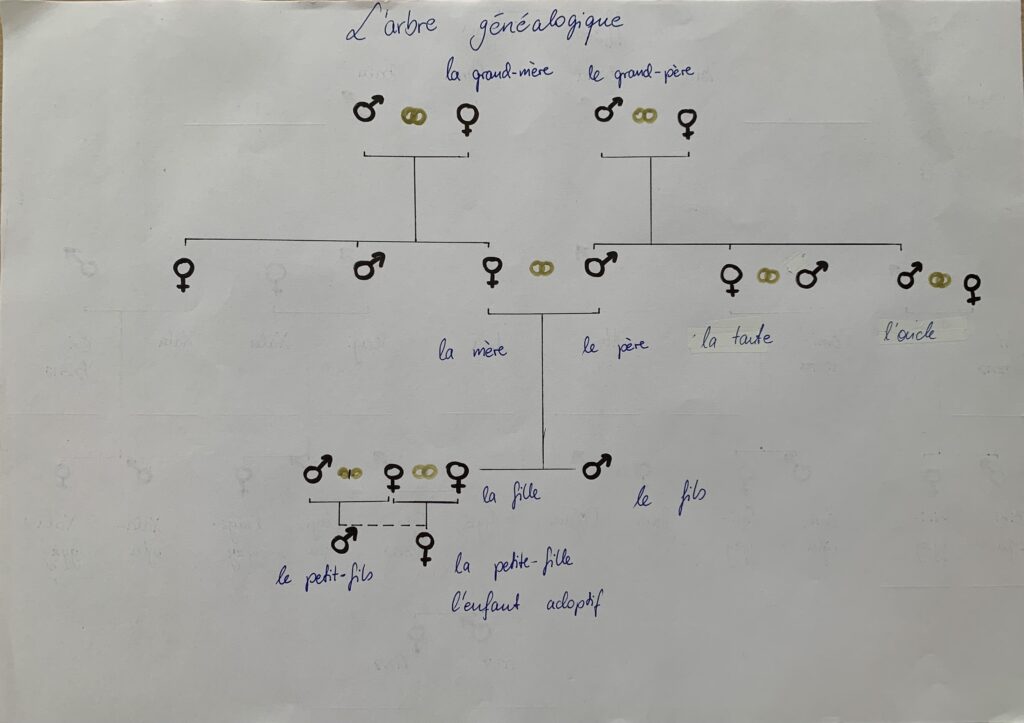 L'arbre généalogique
la grand-mère le grand-père
la mère le père la tante l'oncle
la fille le fils
le petit-fils la petite-fille
l'enfant adoptif